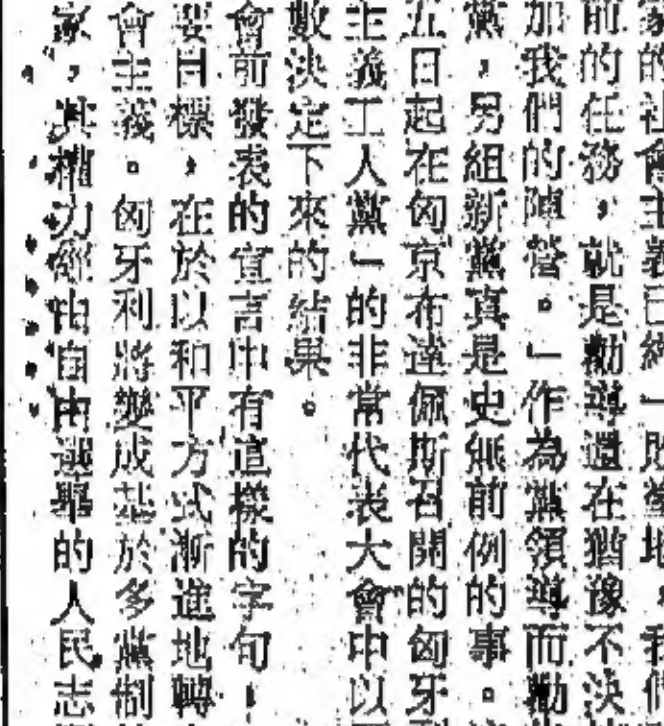 家的社會主義已經一敗塗地，我們
前的任務，就是勸導還在猶豫不決
加我們的陣營。」作為黨領導而勸
黨，另組新黨真是史無前例的事。
五日起在匈京布達佩斯召開的匈牙
主義工人黨」的非常代表大會中以
數決定下來的結果。
會前發表的宣言中有這樣的字句！
要目標，在於以和平方式漸進地轉
會主義。匈牙利將變成基於多黨制
家，其權力經由自由選舉的人民志